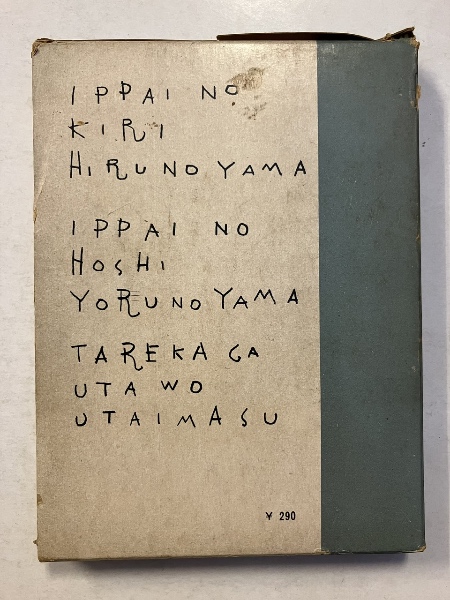 IPPAI NO
KIRI
HIRUNO YAMA
IPPAI NO
HOSHI
YORUNO YAMA
TAREKA GA
UTA WO
UTAIMASU
¥ 290